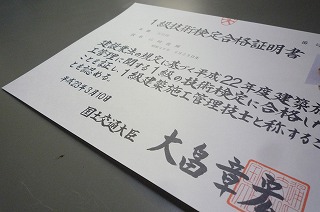 1級技術検定合格証明書
建設業法の規定に基づく平成22年度建築
工管理に関する1級の技術検定に合格した
ことを証し1級建築施工管理技士と称する
とを認める。
平成23年3月10日
国土交通大臣 大畠章宏